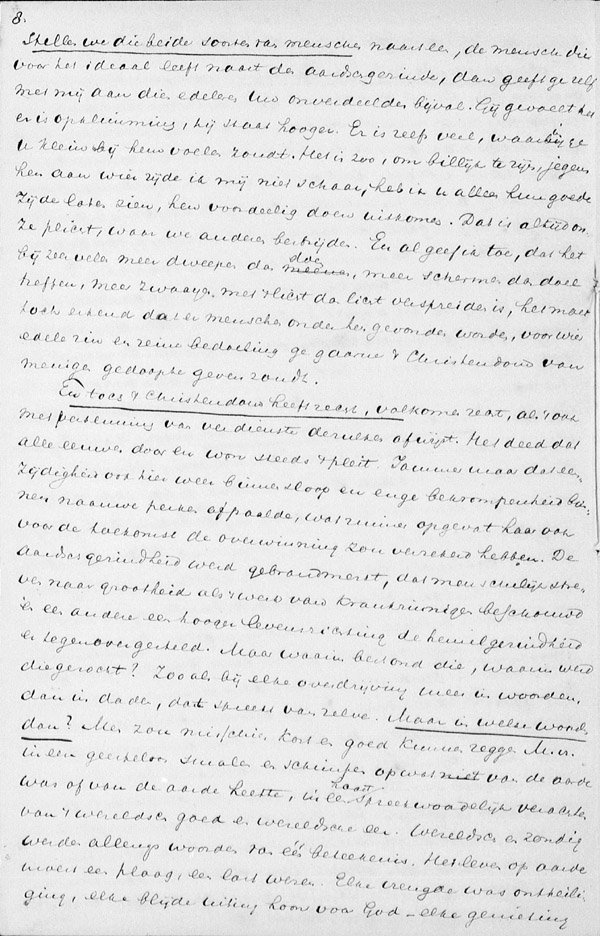 8.
Stellen we die beide soorten van menschen naast een, de mensch die
voor het ideaal leeft naast den aardschgezinde, dan geeft ge zelf
met mij aan dien edelen uw onverdeelden bijval. Gij gevoelt het
er is opklimming, hij staat hooger. Er is zelfs veel, waarbij ge
u klein bij hem voelen zoudt. Het is zoo, om billijk te zijn, jegens
hen aan wier zijde ik mij niet schaar, heb ik u alleen hun goede
zijde laten zien, hen voordeelig doen uitkomen. Dat is altijd on-
ze plicht, waar we anderen bestrijden. En al geef ik toe, dat het
bij zeer velen meer dweepen dan doe, meer schermen dan doel
treffen, meer zwaaijen met 't licht dan licht verspreiden is, het moet
toch erkend dat er menschen onder hen gevonden worden, voor wier
edele zin en reine bedoeling ge gaarne 't Christendom van
menigen gedoopte geven zoudt.
En toch 't Christendom heeft recht, volkomen recht, als 't ook
met erkenning van verdienste derzulken afwijst. Het deed dat
alle eeuwen door en won steeds 't pleit. Jammer maar dat een-
zijdigheid ook hier weer binnensloop en enge bekrompenheid bin-
nen nauwe perken afpaalde, wat ruimer opgevat haar ook
voor de toekomst de overwinning zou verzekerd hebben. De
aardschgezindheid werd gebrandmerkt, dat menschelijk stre-
ven naar grootheid als 't werk van krankzinnigen beschouwd
en een andere een hooger levensrichting de hemelgezindheid
er tegenovergesteld. Maar waarin bestond die, waarin werd
die gezocht? Zooals bij elke overdrijving meer in woorden,
dan in daden, dat spreekt van zelve. Maar in welke woorden
dan? Men zou misschien kort en goed kunnen zeggen M.V.
in een geesteloos smalen en schimpen op wat van de aarde
was of van de aarde heette, in een haast spreekwoordelijk verachten
van 't wereldsch goed en wereldsche eer. Wereldsch en zondig
werden allengs woorden van één beteekenis. Het leven op aarde
moest een plaag, een last wezen. Elke vreugde was ontheili-
ging, elke blijde uiting hoon voor God – elke genieting